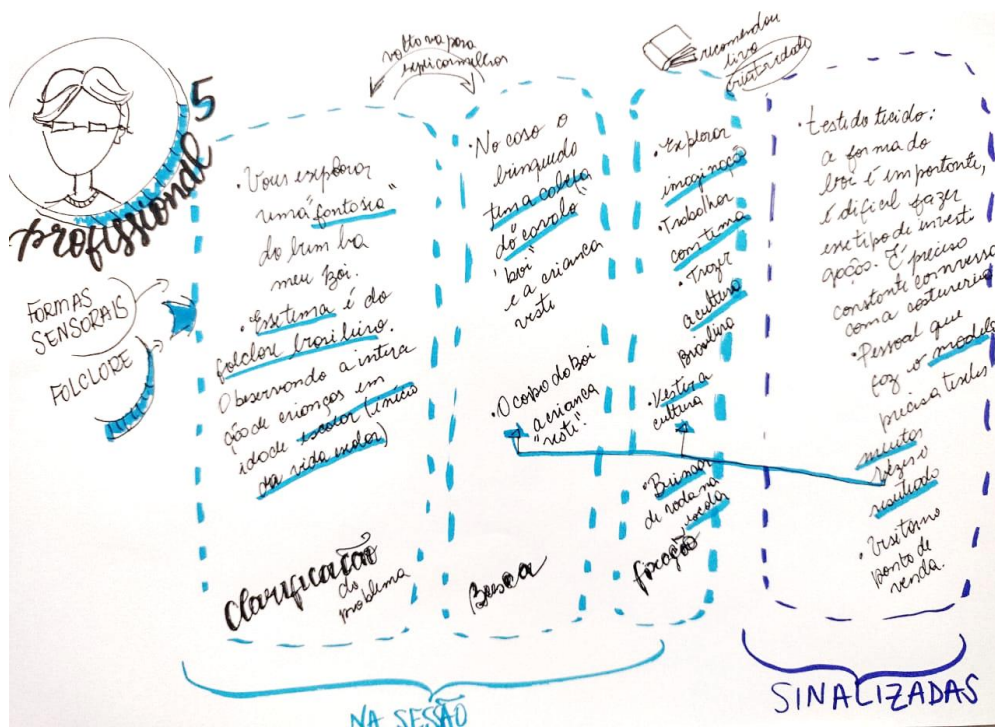 profissional 5
FORMAS
SENSORAIS
FOLCLORE
voltava para
explicar melhor
recomendou
livro
criatividade
• Vou explorar
uma "fantasia"
do bumba
meu Boi.
• Esse tema é do
folclore brasileiro.
Observando a intera
ção de crianças em
idade escolar (início
da vida escolar)
clarificação
do
problema
• No caso o
brinquedo
tem a cabeça
do cavalo
"boi"
e a criança
vesti
• O corpo do boi
a criança
"vesti".
Busca
• Explorar
imaginação
• Trabalhar
com tema
• Trazer
a cultura
Brasileira
• Vestir a
cultura
• Brincar
de roda na
escola
fixação
• teste do tecido:
a forma do
boi é importante,
é difícil fazer
esse tipo de investi
gação. É preciso
constante conversa
com a costureira
• Pessoal que
faz o modelo
precisa testar
muitas
vezes o
resultado
• Visita no
ponto de
venda.
NA SESSÃO
SINALIZADAS